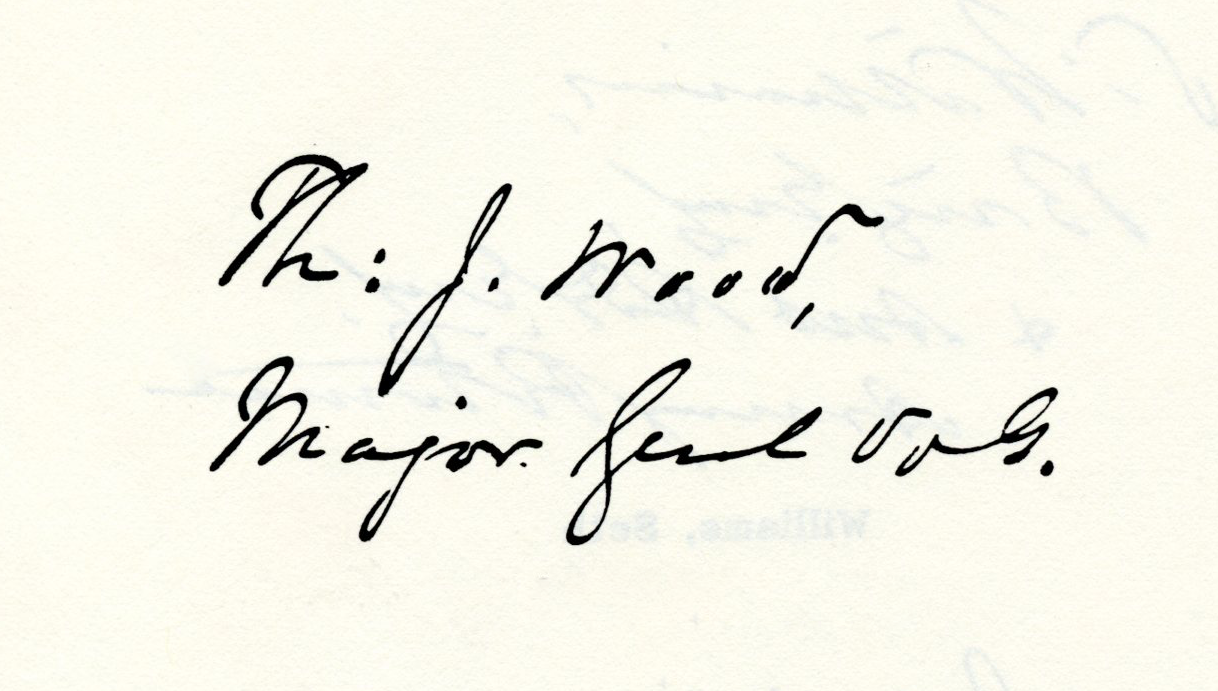 Th: J. Wood,
Major. Genl Vols.